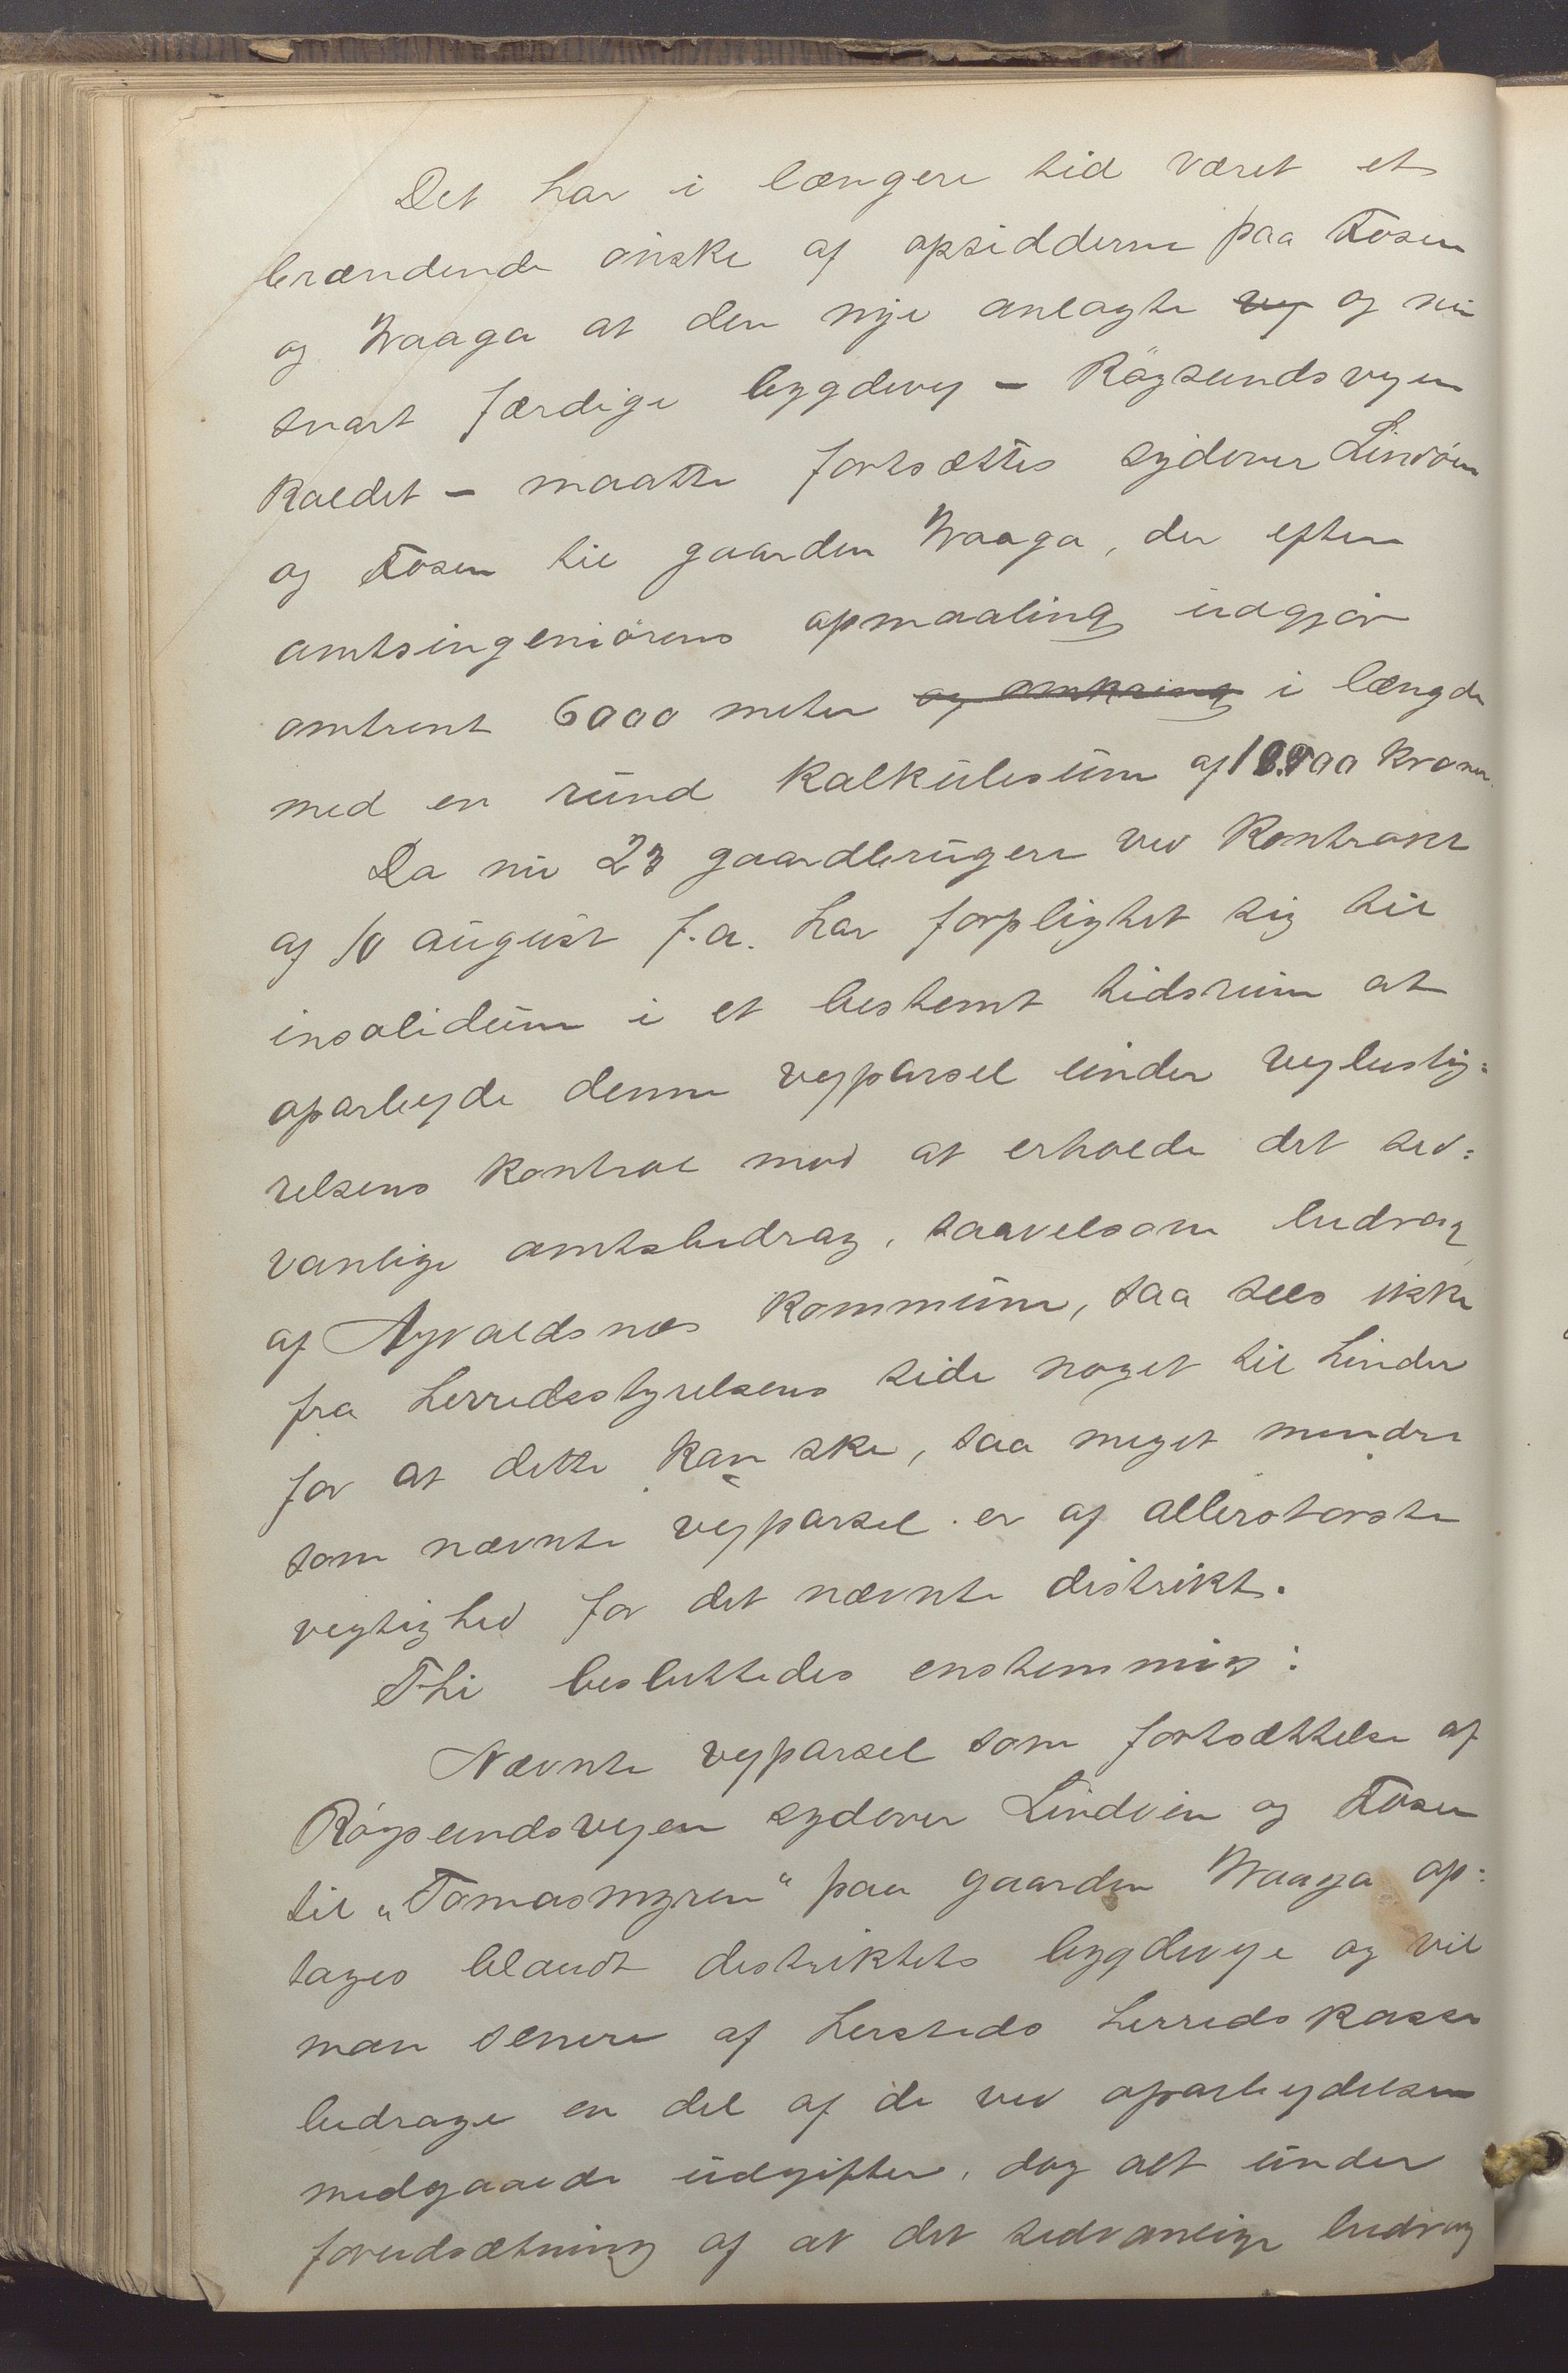 Det har i længere tid været et
brændende ønske af opsidderne paa Fosen
og Waaga at den nye anlagte vej og nu
snart færdige bygdevej – Røgsundsvejen
kaldet – maatte fortsættes sydover Lindøen
og Fosen til gaarden Waaga, der efter
amtsingeniørens opmaaling udgjør
omtrent 6000 meter og omkring i længde
med en rund kalkulesum af kroner.
Da nu 23 gaardbrugere ved kontrakt
af 10 august f.a. har forpligtet sig til
insolidum i et bestemt tidsrum at
oparbejde denne vejparsel under vejbesty=
relsens kontrol mod at erholde det sed=
vanlige amtsbidrag, saavelsom bidrag
af Agvaldsnes kommune, saa sees ikke
fra herredsstyrelsens side noget til hinder
for at dette kan ske, saa meget mindre
som nævnte vejparsel er af allerstørste
vigtighed for det nævnte distrikt.
Thi besluttedes enstemmig:
Nævnte vejparsel som fortsættelse af
Røgsundsvejen sydover Lindøen og Fosen
til „Tomasmyren“ paa gaarden Waaga op=
tages blandt distriktets bygdeveje og vil
man senere af herstedo herredskasse
bidrage en del af de ved oparbejdelsen
medgaaede udgifter, dog alt under
forudsætning af at det sedvanlige bidrag